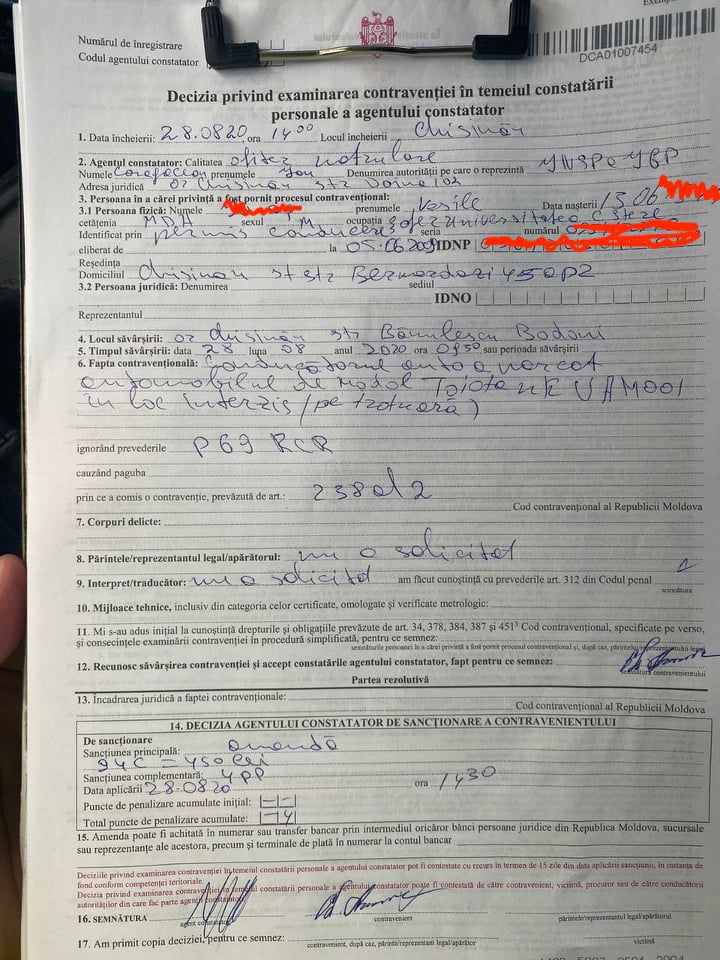 Numărul de înregistrare
Codul agentului constatator
DCA01007454
Decizia privind examinarea contravenției în temeiul constatării
personale a agentului constatator
1. Data încheierii: 28.0820, ora 14 00 Locul încheierii Chisinău
2. Agentul constatator: Calitatea ofițer patrulare
Numele prenumele Ion Denumirea autorității pe care o reprezintă
Adresa juridică or Chisinau str
3. Persoana în a cărei privință a fost pornit procesul contravențional:
3.1 Persoana fizică: Numele prenumele Vasile Data nașterii 13.06
cetățenia MDA sexul M ocupația șofer Universitatea C. Stere
Identificat prin permis conducere seria numărul
eliberat de la 05.06 IDNP
Reședința
Domiciliul Chisinau str
3.2 Persoana juridică: Denumirea sediul
IDNO
Reprezentantul
4. Locul săvârșirii: or Chisinău str Bănulescu Bodoni
5. Timpul săvârșirii: data 28 luna 08 anul 2020 ora sau perioada săvârșirii
6. Fapta contravențională: Conducătorul auto a parcat
automobilul de model Toiota
în loc interzis (pe trotuară)
ignorând prevederile P 69 RCR
cauzând paguba
prin ce a comis o contravenție, prevăzută de art.: 238 al 2
Cod contravențional al Republicii Moldova
7. Corpuri delicte:
8. Părintele/reprezentantul legal/apărătorul: nu a solicitat
9. Interpret/traducător: nu a solicitat am făcut cunoștință cu prevederile art. 312 din Codul penal
semnătura
10. Mijloace tehnice, inclusiv din categoria celor certificate, omologate și verificate metrologic:
11. Mi s-au adus inițial la cunoștință drepturile și obligațiile prevăzute de art. 34, 378, 384, 387 și 451³ Cod contravențional, specificate pe verso,
și consecințele examinării contravenției în procedură simplificată, pentru ce semnez:
semnăturile persoanei în a cărei privință a fost pornit procesul contravențional și, după caz, părintelui/reprezentantului legal
12. Recunosc săvârșirea contravenției și accept constatările agentului constatator, fapt pentru ce semnez:
semnătura contravenientului
Partea rezolutivă
13. Încadrarea juridică a faptei contravenționale:
Cod contravențional al Republicii Moldova
14. DECIZIA AGENTULUI CONSTATATOR DE SANCȚIONARE A CONTRAVENIENTULUI
De sancționare
Sancțiunea principală: amendă
9 UC = 450 lei
Sancțiunea complementară: 4 PP
Data aplicării 28.0820 ora 1430
Puncte de penalizare acumulate inițial: - -
Total puncte de penalizare acumulate: - 4
15. Amenda poate fi achitată în numerar sau transfer bancar prin intermediul oricăror bănci persoane juridice din Republica Moldova, sucursale
sau reprezentanțe ale acestora, precum și terminale de plată în numerar la contul bancar
Deciziile privind examinarea contravenției în temeiul constatării personale a agentului constatator pot fi contestate cu recurs în termen de 15 zile din data aplicării sancțiunii, în instanța de
fond conform competenței teritoriale.
Decizia privind examinarea contravenției în temeiul constatării personale a agentului constatator poate fi contestată de către contravenient, victimă, procuror sau de către conducătorii
autorităților din care fac parte agenții constatatori
16. SEMNĂTURA
agent constatator contravenient părintelui/reprezentantul legal/apărătorul
17. Am primit copia deciziei, pentru ce semnez:
contravenient, după caz, părinte/reprezentant legal/apărător victimă